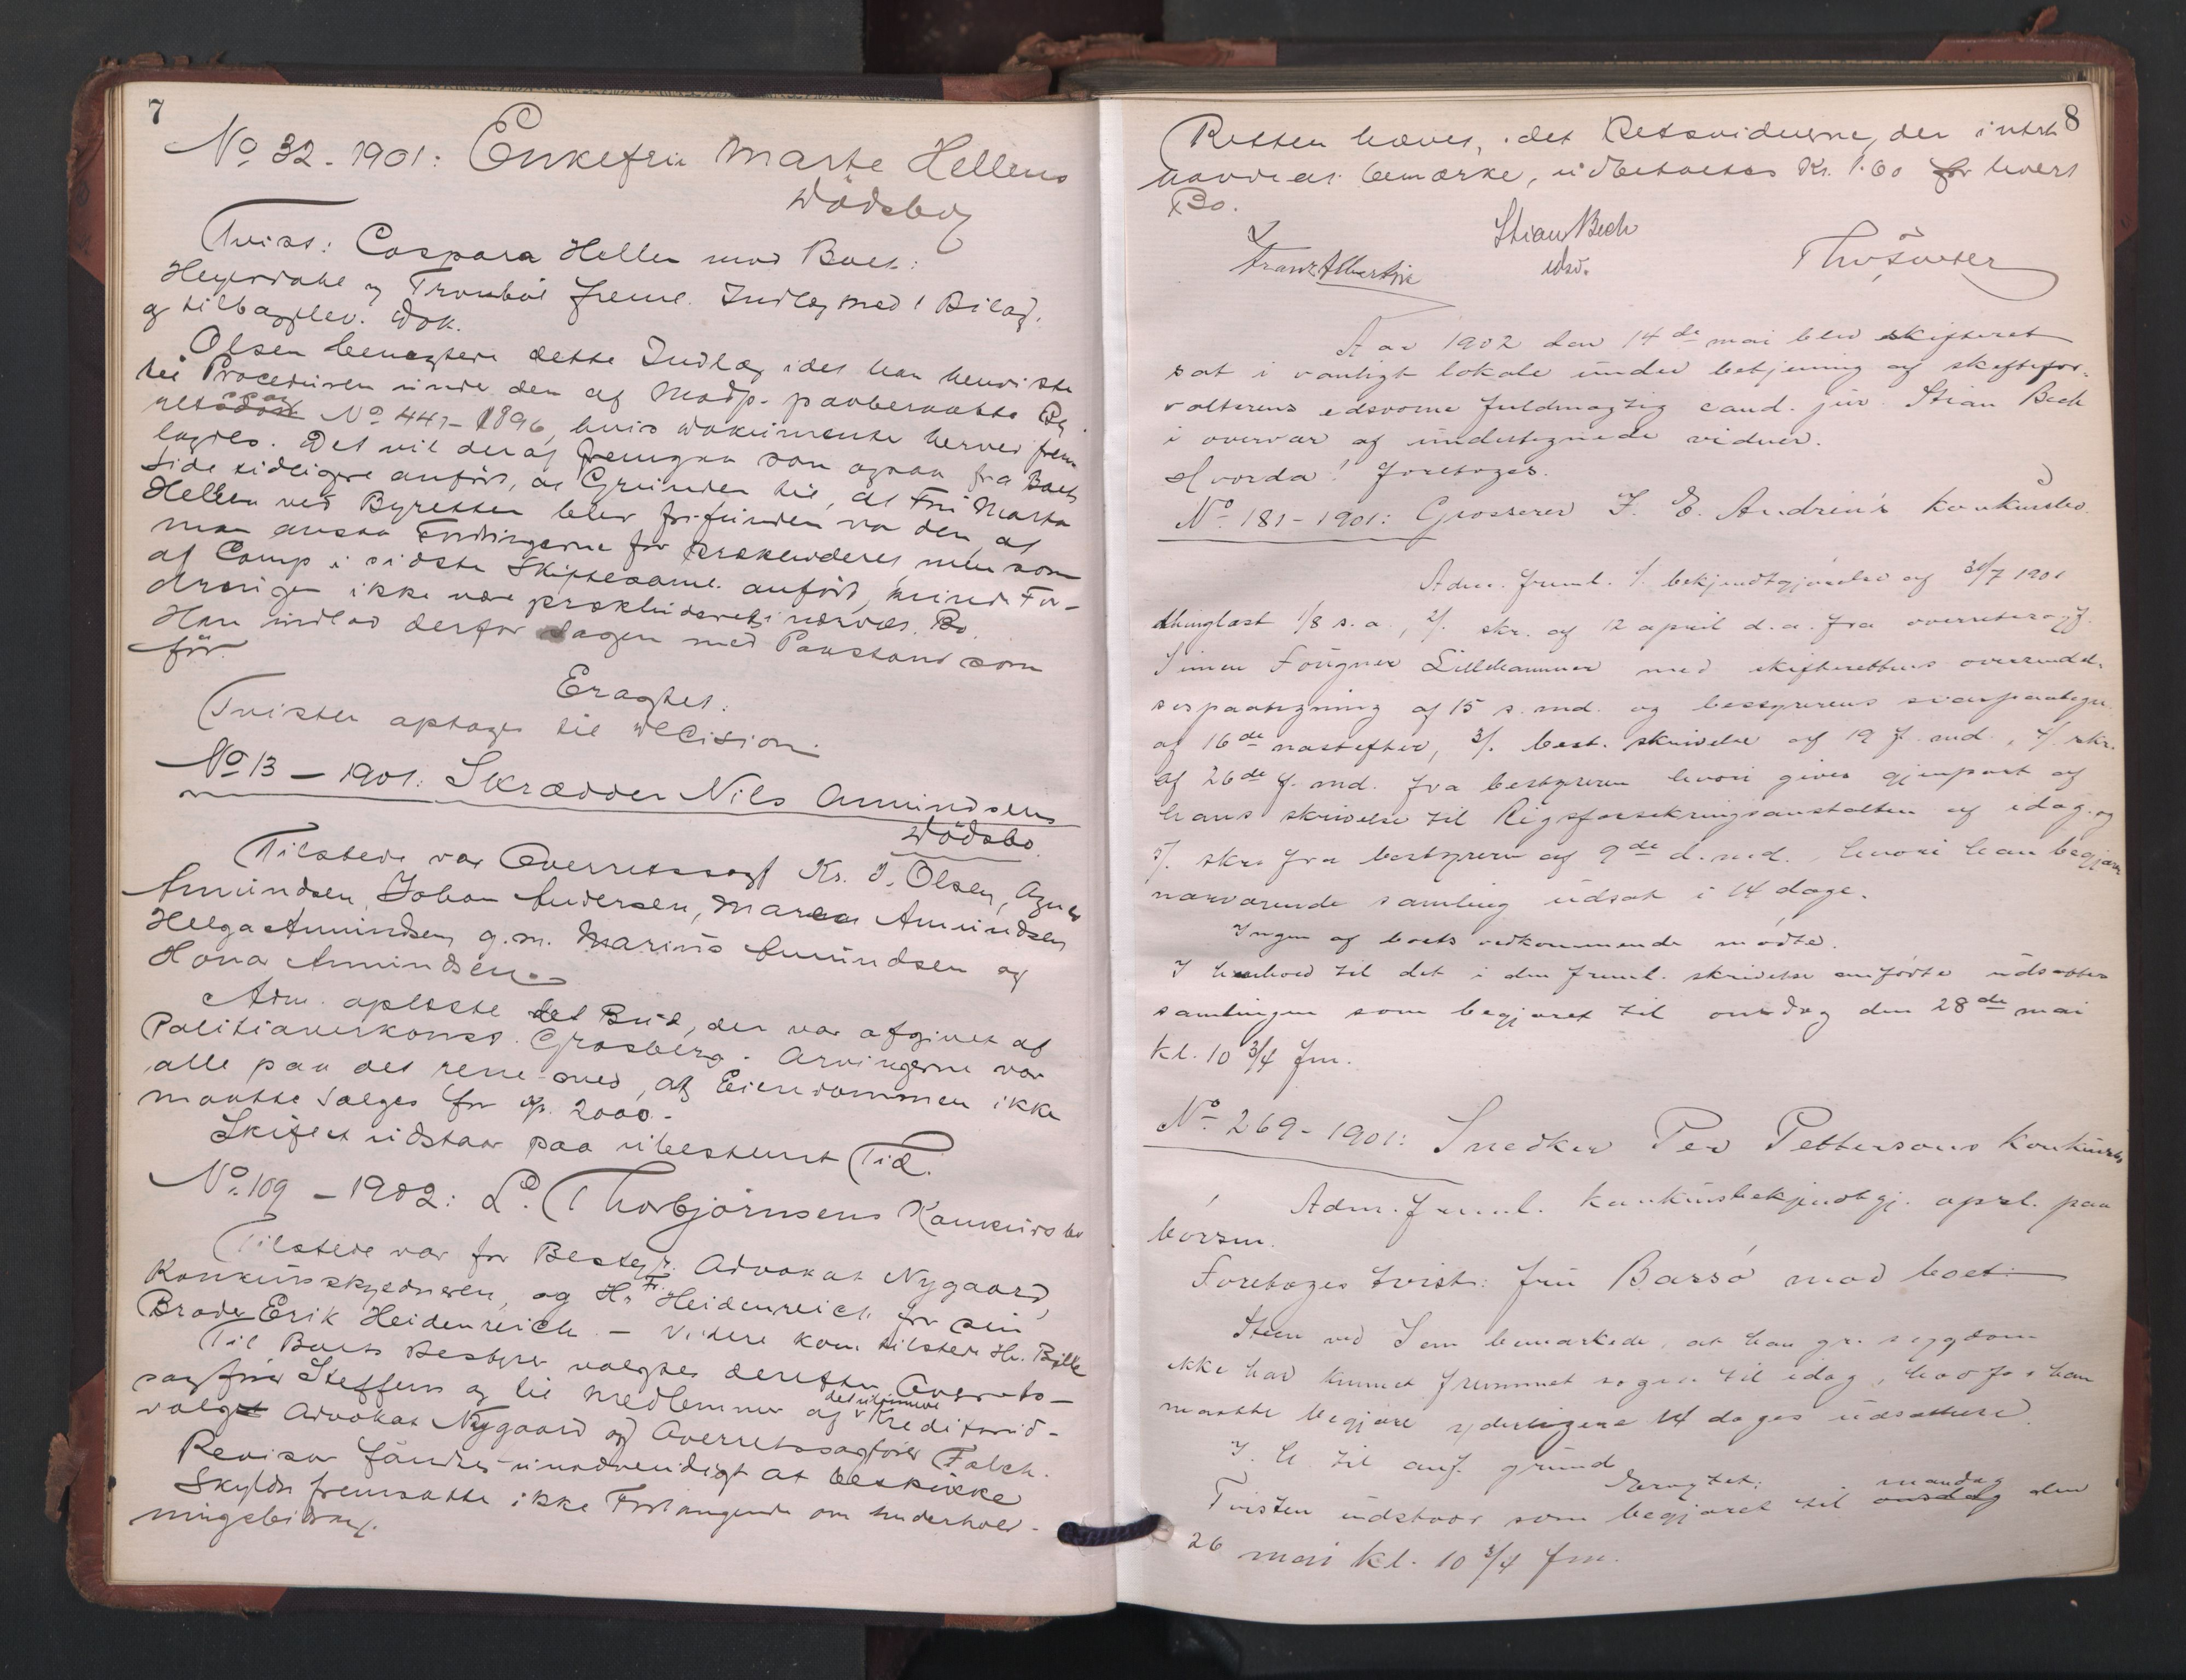 7
No 32 - 1901: Enkefru Marte Hellens
Dödsbo
Tvist: Caspara Hellen mod Boet:
Heyerdahl og Trombol freml. Indlæg med 1 Bilag.
og tilbaglev. Dok.
Olsen benegtede dette Indlæg idet han henviste
til Proceduren under den af Modp. paaberaabte By
retssag No 441 - 1896, hvis Dokumenter herved frem
lagdes. Det vil deraf fremgaa som ogsaa fra Boets
Side tidligere anfört, at Grunden til, at Fru Marte
Hellen ved Byretten blev frifunden var den, at
man ansaa Fordringerne for prækluderet, men som
af Comp i sidste Skiftesaml. anfört, kunde For-
dringen ikke være prækluderet i nærvær. Bo.
Han indlod derfor Sagen med Paastand som
för.
Eragtet.
Tvisten optages til Decision.
No 13 - 1901: Skrædder Nils Amundsens
Dödsbo.
Tilstede var Overretssagf Kr. J. Olsen, Agnes
Amundsen, Johan Andersen, Amundsen
Helga Amundsen g.m. Marius Amundsen og
Amundsen
Adm. oplæste det Bud, der var afgivet af
Politioverkonst. Grasberg. Arvingerne var
alle paa det rene med, at Eiendommen ikke
maatte sælges for op. 2000.-
Skiftet udstaar paa ubestemt Tid.
No. 109 - 1902: L. Thorbjörnsens Konkursbo
Tilstede var for Bestyr. Advokat Nygaard,
Konkursskyldneren, og Hr. Fr. Heidenreich for sin
Broder Erik Heidenreich. - Videre kom tilstede Hr. Bille
Til Boets Bestyrer valgtes derefter Overrets-
sagförer Steffens og til Medlemmer af det udtömmende Kreditorud-
valget Advokat Nygaard og Overretssagförer Falch.
Revisor fandtes unödvendigt at beskikke
Skyldn fremsatte ikke Forlangende om Underhold-
ningsbidrag.
8
Retten hæves, idet Retsvidnerne, der intet
havde at bemærke, udbetaltes Kr. 1.60 for hvert
Bo.
Stian Bech
edsv.
Franz Albertsin
Aar 1902 den 14de mai blev skifteret
sat i vanligt lokale under betjening af skiftefor-
valterens edsvorne fuldmægtig cand. jur. Stian Bech
i overvær af undertegnede vidner.
Hvorda! foretages.
No. 181 - 1901: Grosserer J. E. Andrén's konkursbo.
Adm. freml. 1/. bekjendtgjörelse af 30/7 1901
thinglæst 1/8 s.a., 2/. skr. af 12 april d.a. fra overretssagf.
Simen Fougner Lillehammer med skifterettens oversendel-
sespaategning af 15 s.md. og bestyrerens svarpaategn.
af 16de næstefter, 3/. best. skrivelse af 19 f.md., 4/. skr.
af 26de f.md. fra bestyreren hvori gives gjenpart af
hans skrivelse til Rigsforsikringsanstalten af idag og
5/. skr. fra bestyrer af 9de d.md., hvori han begjær
nærværende samling udsat i 14 dage.
Ingen af boets vedkommende mödte.
I henhold til det i den freml. skrivelse anförte udsættes
samlingen som begjæret til onsdag den 28de mai
kl. 10 3/4 fm.
No. 269 - 1901: Snedker Per Pettersons konkursbo
Adm. freml. konkursbekjendtgj. opsl. paa
börsen.
Foretages tvist: fru Barsö mod boet:
Steen ved Sem bemærkede, at han gr. sygdom
ikke har kunnet fremmet sagen til idag, hvorfor han
maatte begjære yderligere 14 dages udsættelse.
I h. til anf. grund
Eragtet:
Tvisten udstaar som begjæret til mandag den
26 mai kl. 10 3/4 fm.